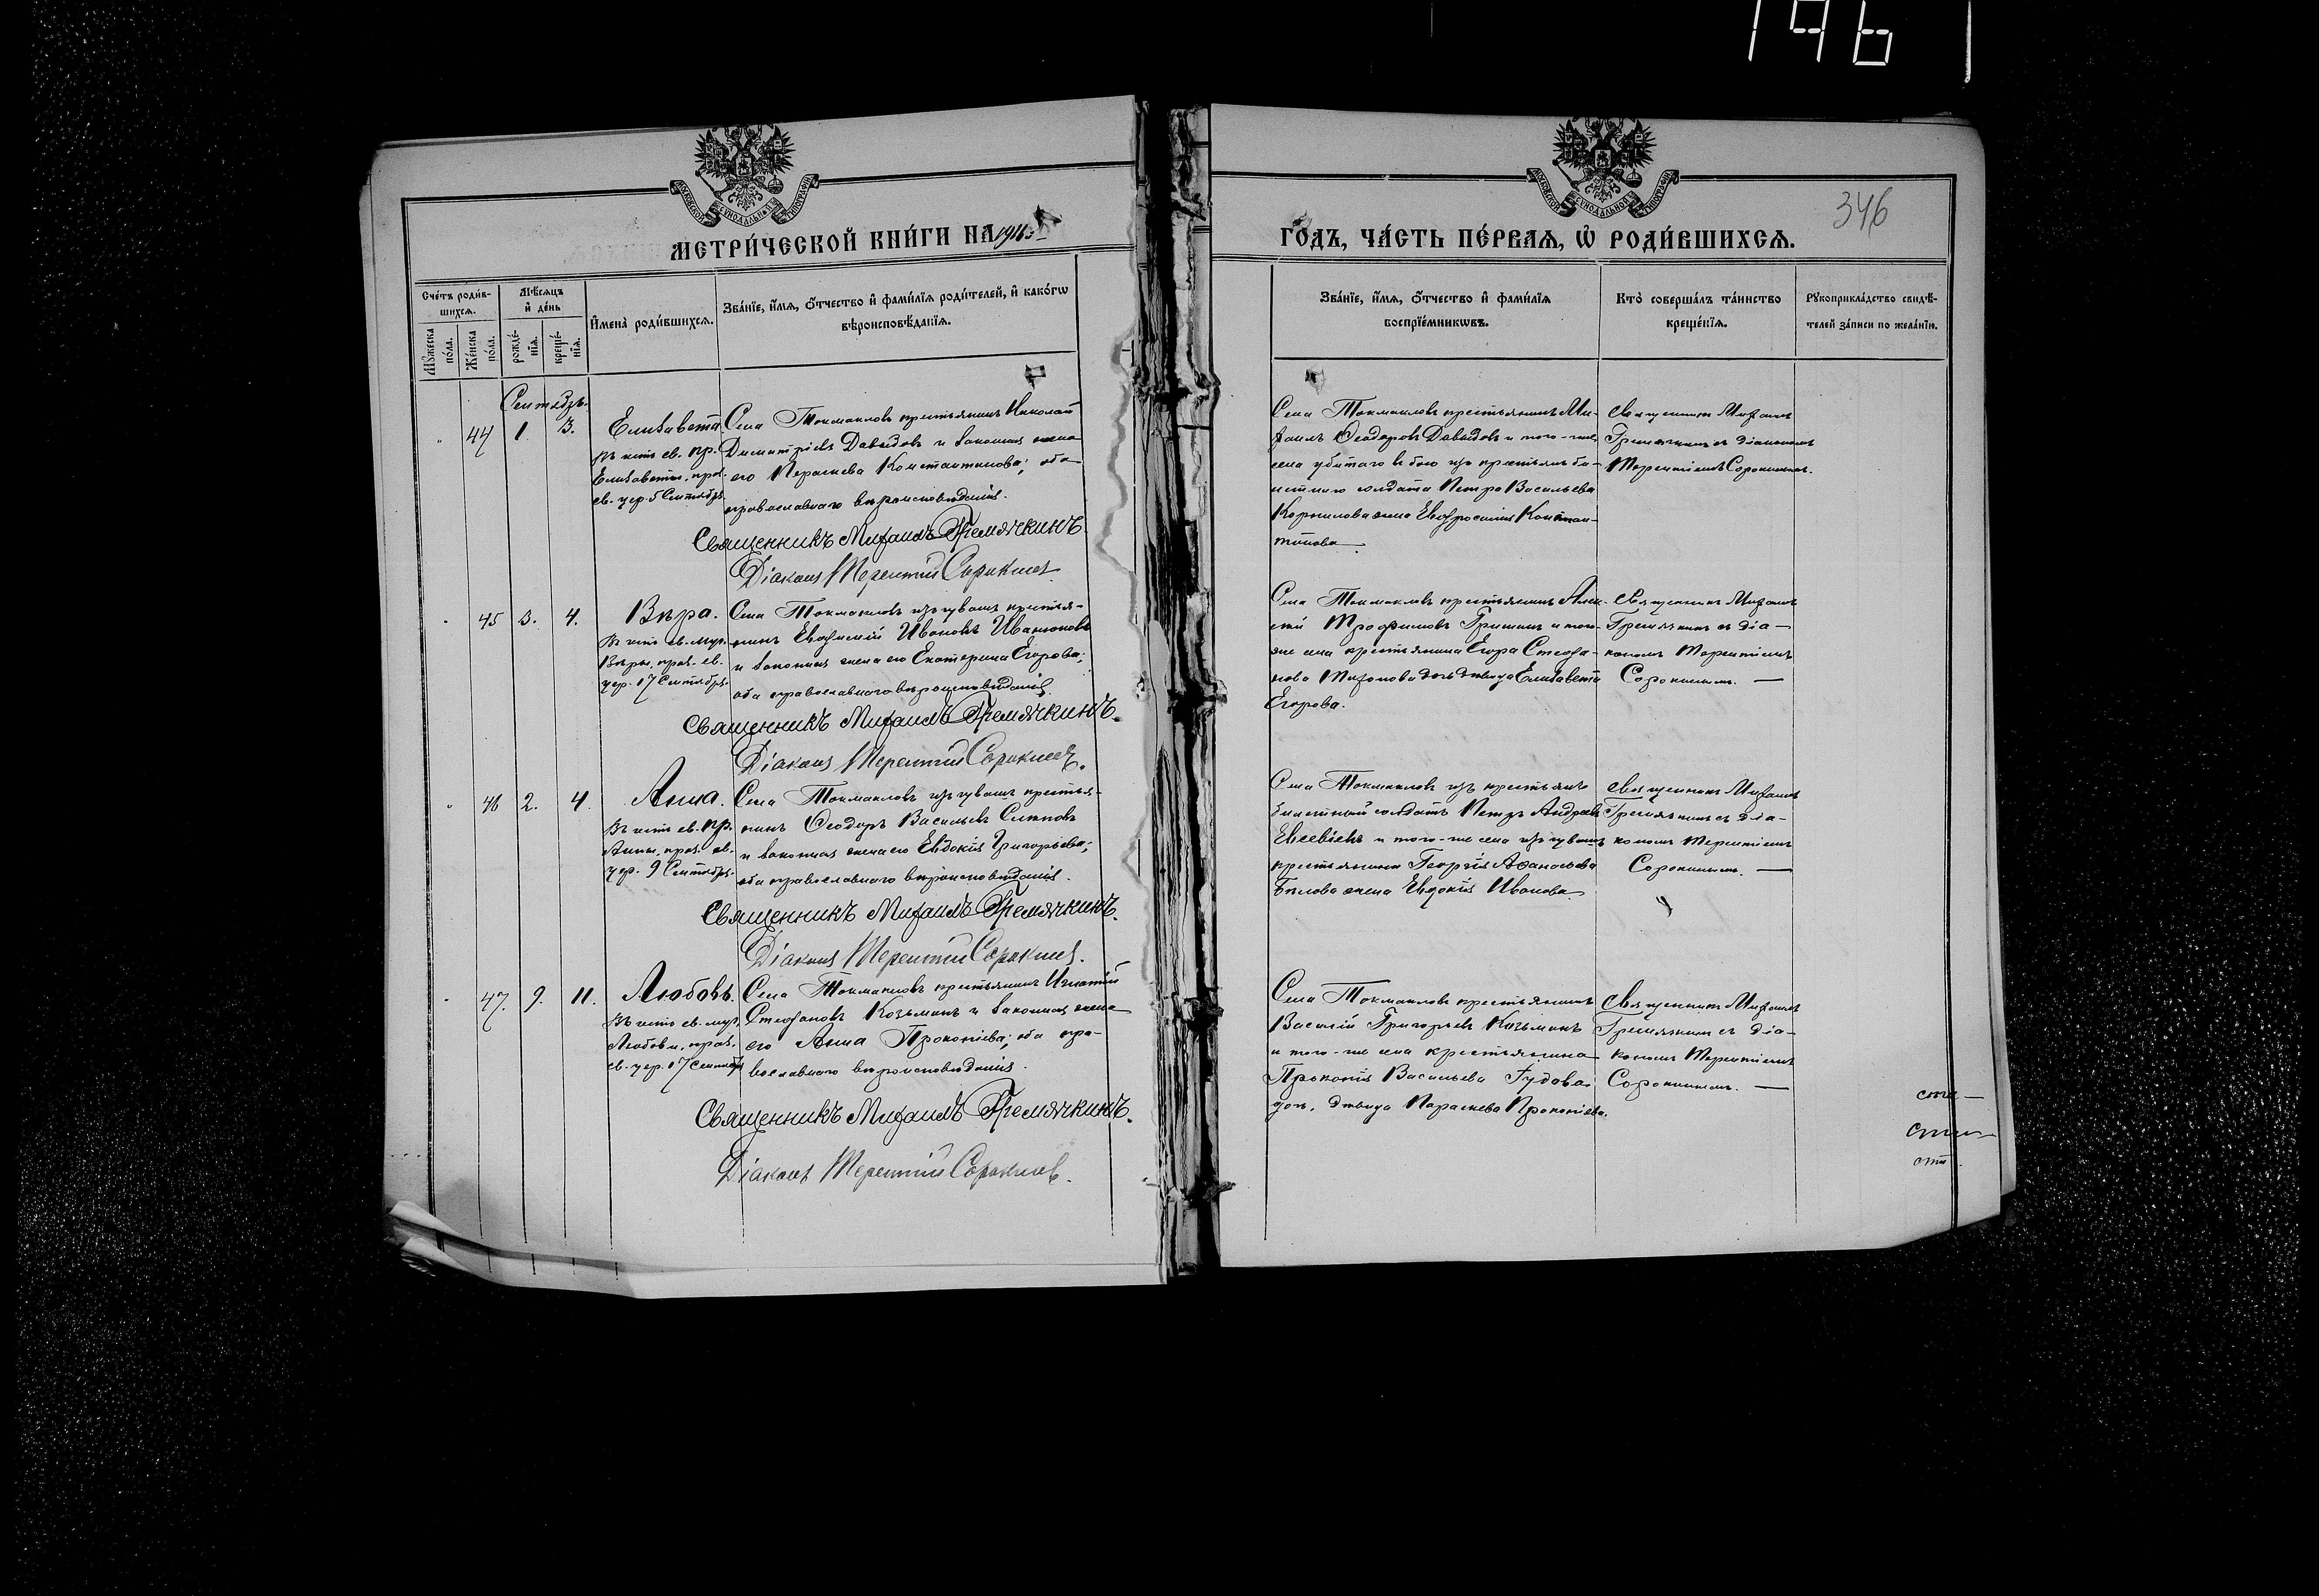 1461
346
МЕТРИ́ЧЕСКОЙ КНИ́ГИ НА 1916
ГО́ДЪ, ЧА́СТЬ ПЕ́РВАЯ, Ѿ РОДИ́ВШИХСЯ.
Сче́тъ роди́в-
шихся.
Мѣ́сяцъ
и҆ де́нь
Мꙋ́жеска по́ла.
Же́нска по́ла.
рожде́-
нїѧ.
креще́-
нїѧ.
И҆мена̀ роди́вшихся.
Зва́нїе, и҆́мѧ, ѻ҆́тчество и҆ фами́лїѧ роди́телей, и҆ како́гѡ
вѣроисповѣ́данїѧ.
Зва́нїе, и҆́мѧ, ѻ҆́тчество и҆ фами́лїѧ
воспрїе́мникѡвъ.
Кто̀ соверша́лъ та́инство
креще́нїѧ.
Рꙋкоприкла́дство свидѣ́-
телей за́писи по жела́нїю.
Сентябрь.
44 1 3.
Елизавета
Въ честь св. пр.
Елизаветы, праз.
св. цер. 5 Сентябр.
Села Токмаклов крестьянинъ Николай
Димитріевъ Давыдовъ и законная жена
его Параскева Константинова; оба
православнаго вѣроисповѣданія.
Священникъ Михаилъ Гремячкинъ.
Діаконъ Терентій Сорокинъ
Села Токмаклов крестьянинъ Ми-
хаилъ Ѳеодоровъ Давыдовъ и того-же
села убитаго в бою изъ крестьянъ би-
летнаго солдата Петра Васильева
Корнилова жена Евфросинія Констан-
тинова
Священникъ Михаилъ
Гремячкинъ съ діакономъ
Терентіемъ Сорокинымъ.
45 3. 4.
Вѣра.
Въ честь св. муч.
Вѣры, праз. св.
цер. 17 Сентябр.
Села Токмаклов изъ чувашъ крестья-
нинъ Евфимій Ивановъ Иванюковъ
и законная жена его Екатерина Егорова;
оба православнаго вѣроисповѣданія.
Священникъ Михаилъ Гремячкинъ.
Діаконъ Терентій Сорокинъ.
Села Токмаклов крестьянинъ Алек-
сѣй Трофимовъ Гришинъ и того-
же села крестьянина Егора Стефа-
нова дочь дѣвица Елизавета
Егорова.
Священникъ Михаилъ
Гремячкинъ съ діа-
кономъ Терентіемъ
Сорокинымъ.
46 2. 4.
Анна.
Въ честь св. пр.
Анны, праз. св.
цер. 9 Сентябр.
Села Токмаклов изъ чувашъ крестья-
нинъ Ѳеодоръ Васильевъ
и законная жена его Евдокія Григорьева;
оба православнаго вѣроисповѣданія.
Священникъ Михаилъ Гремячкинъ.
Діаконъ Терентій Сорокинъ.
Села Токмаклов изъ крестьянъ
билетный солдатъ Петръ Андреевъ
Евсевіевъ и того-же села изъ чувашъ
крестьянина Георгія Аѳанасьева
Бѣлова жена Евдокія Иванова
Священникъ Михаилъ
Гремячкинъ съ діа-
кономъ Терентіемъ
Сорокинымъ.
47. 9. 11.
Любовь.
Въ честь св. муч.
Любови, праз.
св. цер. 17 Сентябр.
Села Токмаклов крестьянинъ Игнатій
Стефановъ Козьминъ и законная жена
его Анна Прокопіева; оба пра-
вославнаго вѣроисповѣданія.
Священникъ Михаилъ Гремячкинъ.
Діаконъ Терентій Сорокинъ.
Села Токмаклов крестьянинъ
Василій Григорьевъ Козьминъ
и того-же села крестьянина
Прокопія Васильева Гудова
доч. дѣвица Параскева Прокопіева.
Священникъ Михаилъ
Гремячкинъ съ діа-
кономъ Терентіемъ
Сорокинымъ.